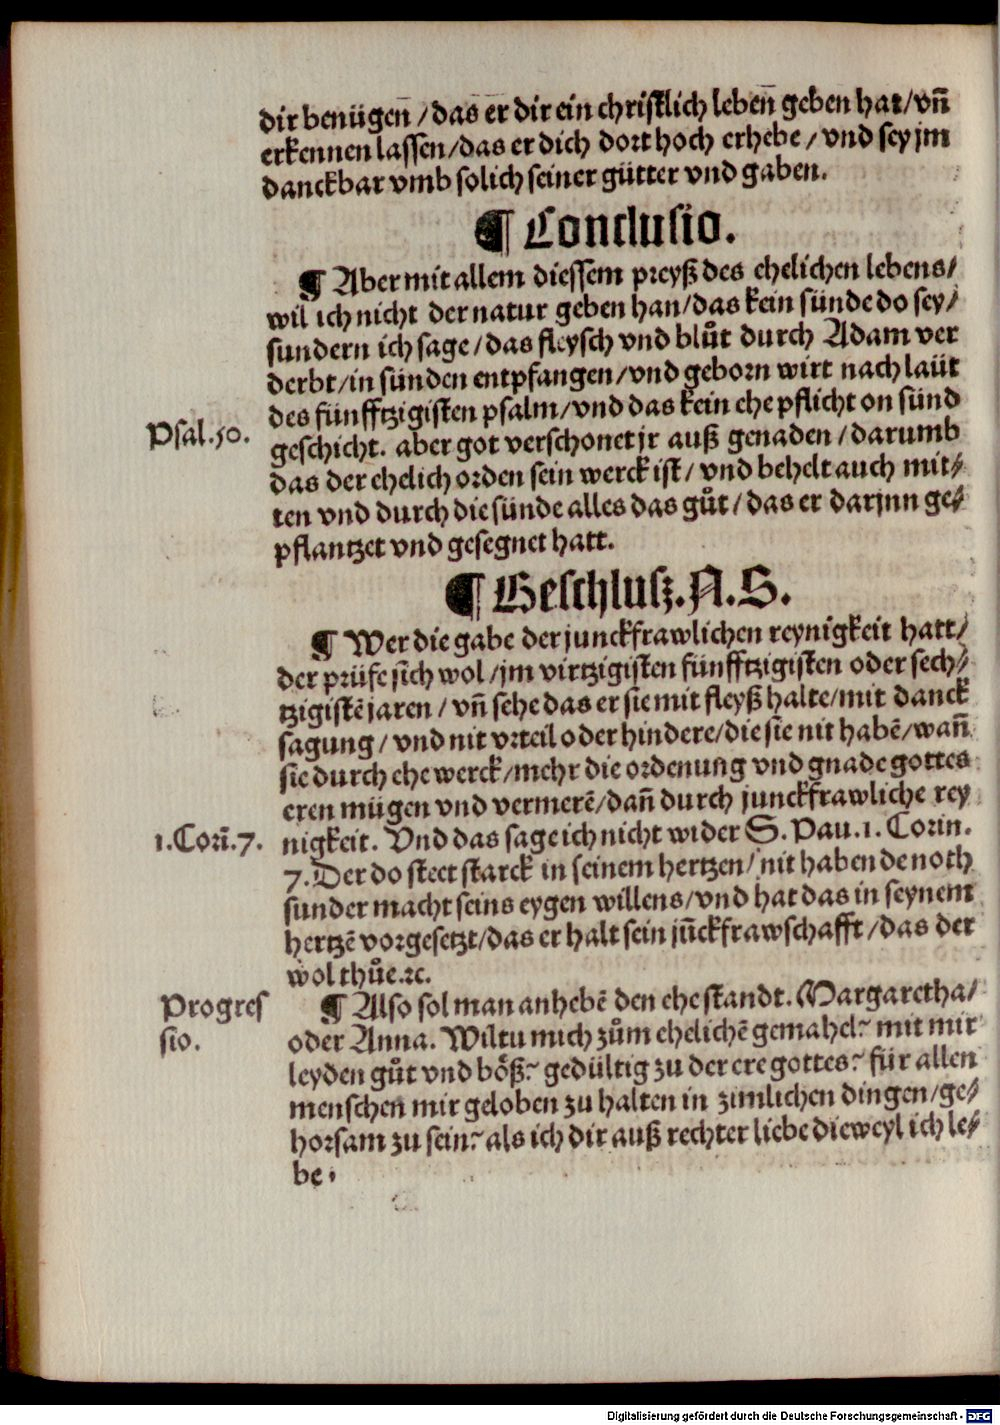 dir benügen̄ /das er dir ein christlich leben̄ geben hat/vn̄
erkennen lassen/das er dich dort hoch erhebe / vnd sey jm
danckbar vmb solich seiner gütter vnd gaben.
¶ Conclusio.
¶ Aber mit allem diessem preyß des ehelichen lebens/
wil ich nicht der natur geben han/das kein sünde do sey/
sundern ich sage/das fleysch vnd blůt durch Adam ver
derbt/in sünden entpfangen/vnd geborn wirt nach laüt
des fünfftzigisten psalm/vnd das kein ehe pflicht on sünd
Psal.50.
geschicht. aber got verschonet jr auß genaden /darumb
das der ehelich orden sein werck ist/ vnd behelt auch mit⸗
ten vnd durch die sünde alles das gůt/das er darjnn ge⸗
pflantzet vnd gesegnet hatt.
¶ Beschlusz.A.S.
¶ Wer die gabe der junckfrawlichen reynigkeit hatt/
der prüfe sich wol /jm virtzigisten fünfftzigisten oder sech⸗
tzigistē jaren / vn̄ sehe das er sie mit fleyß halte/mit danck
sagung / vnd nit vrteil oder hindere/die sie nit habē/wan̄
sie durch ehe werck/mehr die ordenung vnd gnade gottes
eren mügen vnd vermerē/dan̄ durch junckfrawliche rey
1.Corin̄.7.
nigkeit. Vnd das sage ich nicht wider S. Pau.1. Corin.
7. Der do steet starck in seinem hertzen/nit haben de noth
sunder macht seins eygen willens/vnd hat das in seynem
hertzē vorgesetzt/das er halt sein jūckfrawschafft /das der
wol thůe.⁊c.
Progres
sio.
¶ Also sol man anhebē den ehe standt. Margaretha/
oder Anna. Wiltu mich zům ehelichē gemahel? mit mir
leyden gůt vnd böß? gedültig zu der ere gottes? für allen
menschen mir geloben zu halten in zimlichen dingen/ge⸗
horsam zu sein? als ich dir auß rechter liebe dieweyl ich le⸗
be.
Digitalisierung gefördert durch die Deutsche Forschungsgemeinschaft - DFG